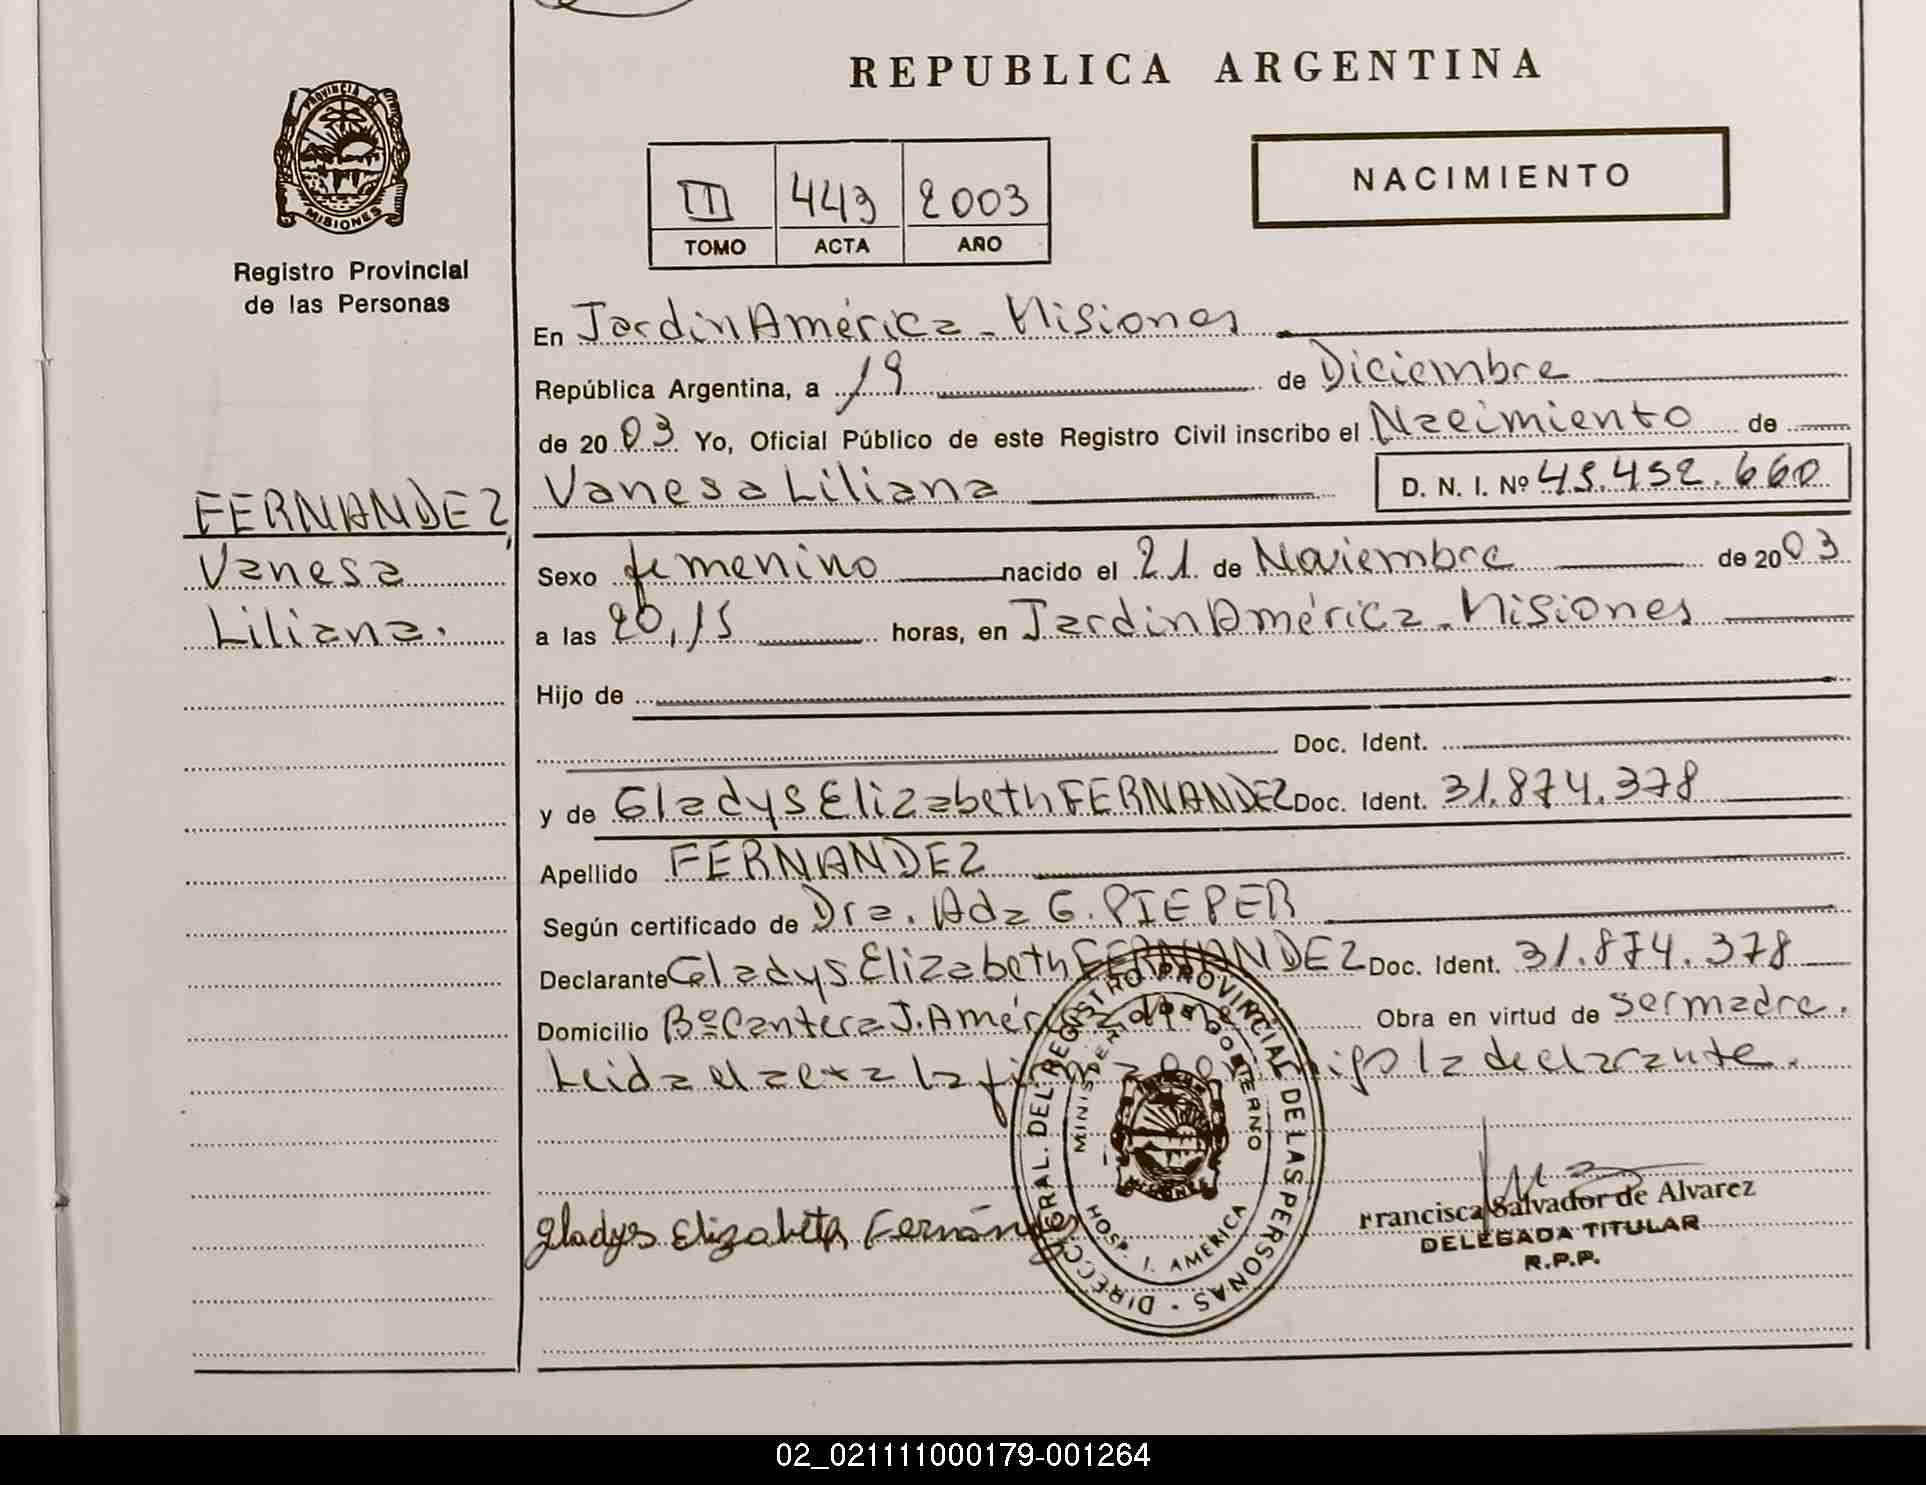 REPUBLICA ARGENTINA
PROVINCIA DE
MISIONES
Registro Provincial
de las Personas
III 443 2003
TOMO ACTA AÑO
NACIMIENTO
En Jardin América - Misiones
República Argentina, a 19 de Diciembre
de 20 03 Yo, Oficial Público de este Registro Civil inscribo el Nacimiento de
Vanesa Liliana D. N. I. Nº 45.452.660
FERNANDEZ,
Vanesa
Liliana.
Sexo femenino nacido el 21 de Noviembre de 20 03
a las 20,15 horas, en Jardin América - Misiones
Hijo de
Doc. Ident.
y de Gladys Elizabeth FERNANDEZ Doc. Ident. 31.874.378
Apellido FERNANDEZ
Según certificado de Dra. Ada G. PIEPER
Declarante Gladys Elizabeth FERNANDEZ Doc. Ident. 31.874.378
Domicilio Bº Cantera J. América Obra en virtud de ser madre.
Leida el acta la firma conmigo la declarante.
DIRECC. GRAL. DEL REGISTRO PROVINCIAL DE LAS PERSONAS
MINIST. DE GOBIERNO
HOSP. J. AMERICA
Gladys Elizabeth Fernández
Francisca Salvador de Alvarez
DELEGADA TITULAR
R.P.P.
02_021111000179-001264